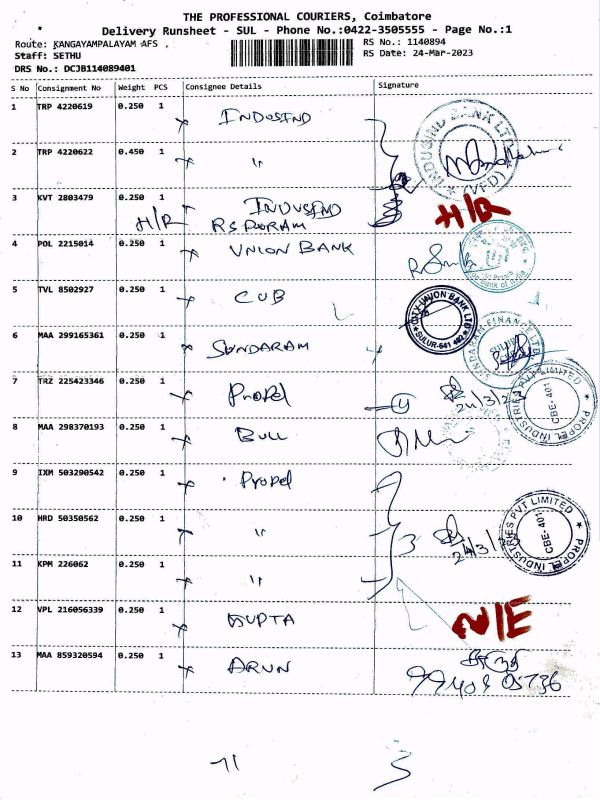 THE PROFESSIONAL COURIERS, Coimbatore
Delivery Runsheet - SUL - Phone No.:0422-3505555 - Page No.:1
Route: KANGAYAMPALAYAM AFS , RS No.: 1140894
Staff: SETHU RS Date: 24-Mar-2023
DRS No.: DCJB114089401
S No Consignment No Weight PCS Consignee Details Signature
1 TRP 4220619 0.250 1 INDUSIND
INDUSIND BANK LTD (VFD)
2 TRP 4220622 0.450 1 "
3 KVT 2803479 0.250 1 INDUSIND
H/R H/R
4 POL 2215014 0.250 1 UNION BANK
5 TVL 8502927 0.250 1 CUB
CITY UNION BANK LTD SULUR-641 402
6 MAA 299165361 0.250 1 SUNDARAM
SUNDARAM FINANCE LTD
7 TRZ 225423346 0.250 1 Propel 4 24/3/23
PROPEL INDUSTRIES PVT LIMITED CBE-401
8 MAA 298370193 0.250 1 BULL
9 IXM 503290542 0.250 1 Propel
10 HRD 50350562 0.250 1 " 3
PROPEL INDUSTRIES PVT LIMITED CBE-401
11 KPM 226062 0.250 1 "
12 VPL 216056339 0.250 1 GUPTA N/E
13 MAA 859320594 0.250 1 ARUN